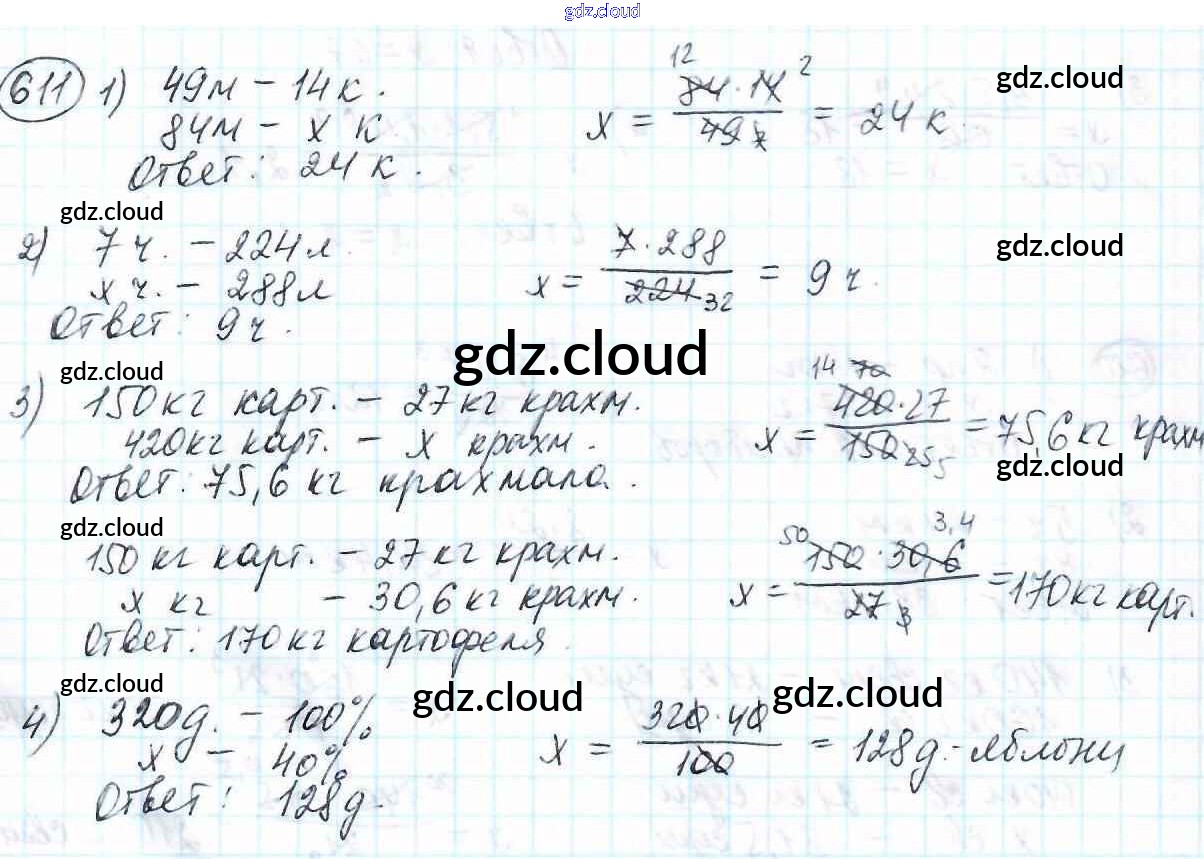 gdz.cloud
611 1) 49м – 14 к. x = 84·14/49 = 24 к. 12 2 7
gdz.cloud
84м – x к
Ответ: 24 к.
gdz.cloud
2) 7 ч. – 224 л. x = 7·288/224 = 9 ч. 32
gdz.cloud
x ч. – 288 л
Ответ: 9 ч.
gdz.cloud
gdz.cloud
3) 150 кг карт. – 27 кг крахм. x = 420·27/150 = 75,6 кг крахм 14 70 25 5
420 кг карт. – x крахм.
gdz.cloud
Ответ: 75,6 кг крахмала.
gdz.cloud
150 кг карт. – 27 кг крахм. x = 150·30,6/27 = 170 кг карт. 50 3,4 3
x кг – 30,6 кг крахм.
Ответ: 170 кг картофеля.
gdz.cloud
gdz.cloud
gdz.cloud
4) 320 д. – 100% x = 320·40/100 = 128 д. – яблони
x – 40%
Ответ: 128 д.